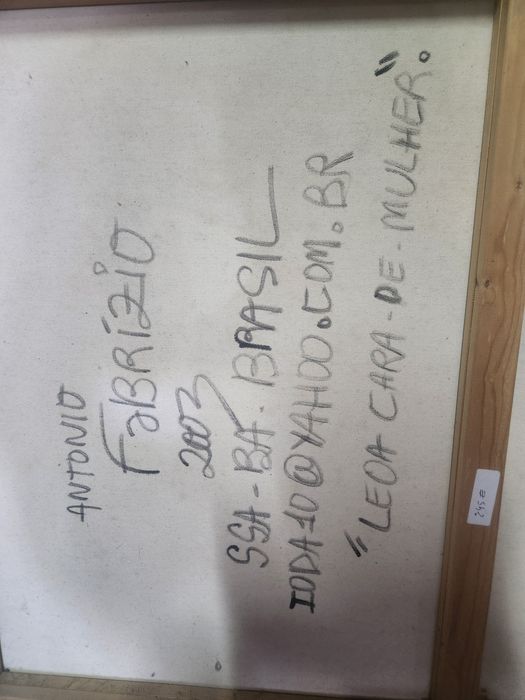 ANTONIO
FABRÍZIO
2003
SSA-BA. BRASIL
IODA10@YAHOO.COM.BR
"LEOA CARA-DE-MULHER".
245 €